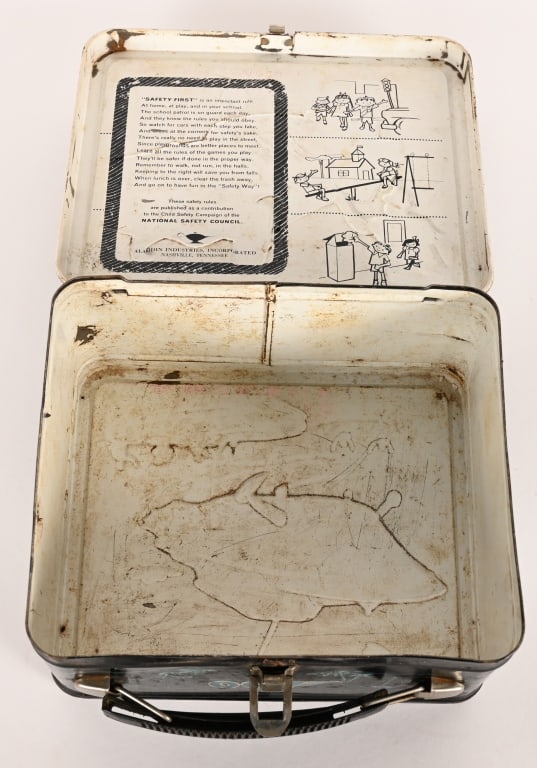 "SAFETY FIRST" is an important rule
At home, at play, and in your school.
The school patrol is on guard each day,
And they know the rules you should obey.
So watch for cars with each step you take,
And at the corners for safety's sake.
There's really no need to play in the street,
Since playgrounds are better places to meet.
Learn all the rules of the games you play.
They'll be safer if done in the proper way.
Remember to walk, not run, in the halls.
Keeping to the right will save you from falls.
When lunch is over, clear the trash away,
And go on to have fun in the "Safety Way"!
These safety rules
are published as a contribution
to the Child Safety Campaign of the
NATIONAL SAFETY COUNCIL.
ALADDIN INDUSTRIES, INCORPORATED
NASHVILLE, TENNESSEE